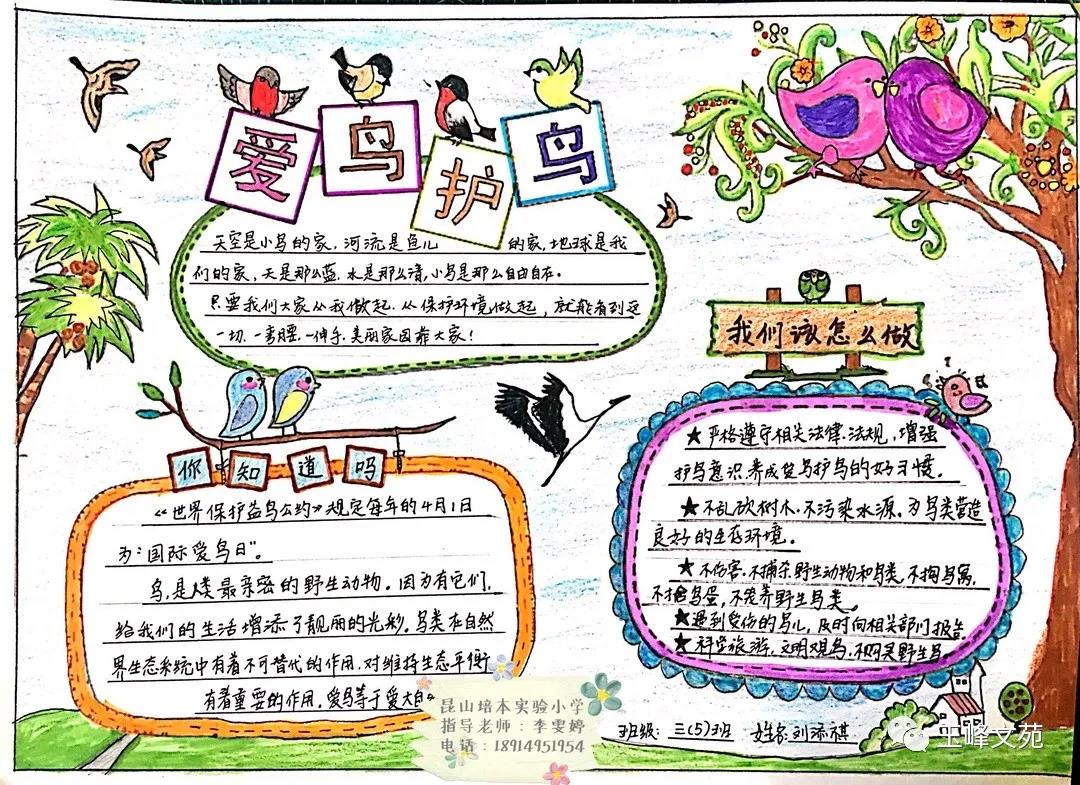 爱鸟护鸟
天空是小鸟的家,河流是鱼儿的家,地球是我
们的家,天是那么蓝,水是那么清,小鸟是那么自由自在。
只要我们大家从我做起,从保护环境做起,就能看到这
一切,一弯腰,一伸手,美丽家园靠大家!
我们该怎么做
★严格遵守相关法律、法规,增强
护鸟意识,养成爱鸟护鸟的好习惯。
★不乱砍树木,不污染水源,为鸟类营造
良好的生存环境。
★不伤害、不捕杀野生动物和鸟类,不掏鸟窝,
不捡鸟蛋,不笼养野生鸟类。
★遇到受伤的鸟儿,及时向相关部门报告
★科学旅游,文明观鸟,不购买野生鸟
你知道吗
《世界保护益鸟公约》规定每年的4月1日
为:“国际爱鸟日”。
鸟,是人类最亲密的野生动物。因为有它们,
给我们的生活增添了靓丽的光彩。鸟类在自然
界生态系统中有着不可替代的作用,对维持生态平衡
有着重要的作用。爱鸟等于爱大自
昆山培本实验小学
指导老师:李雯婷
电话:18914951954
班级:三(5)班 姓名:刘添祺
玉峰文苑